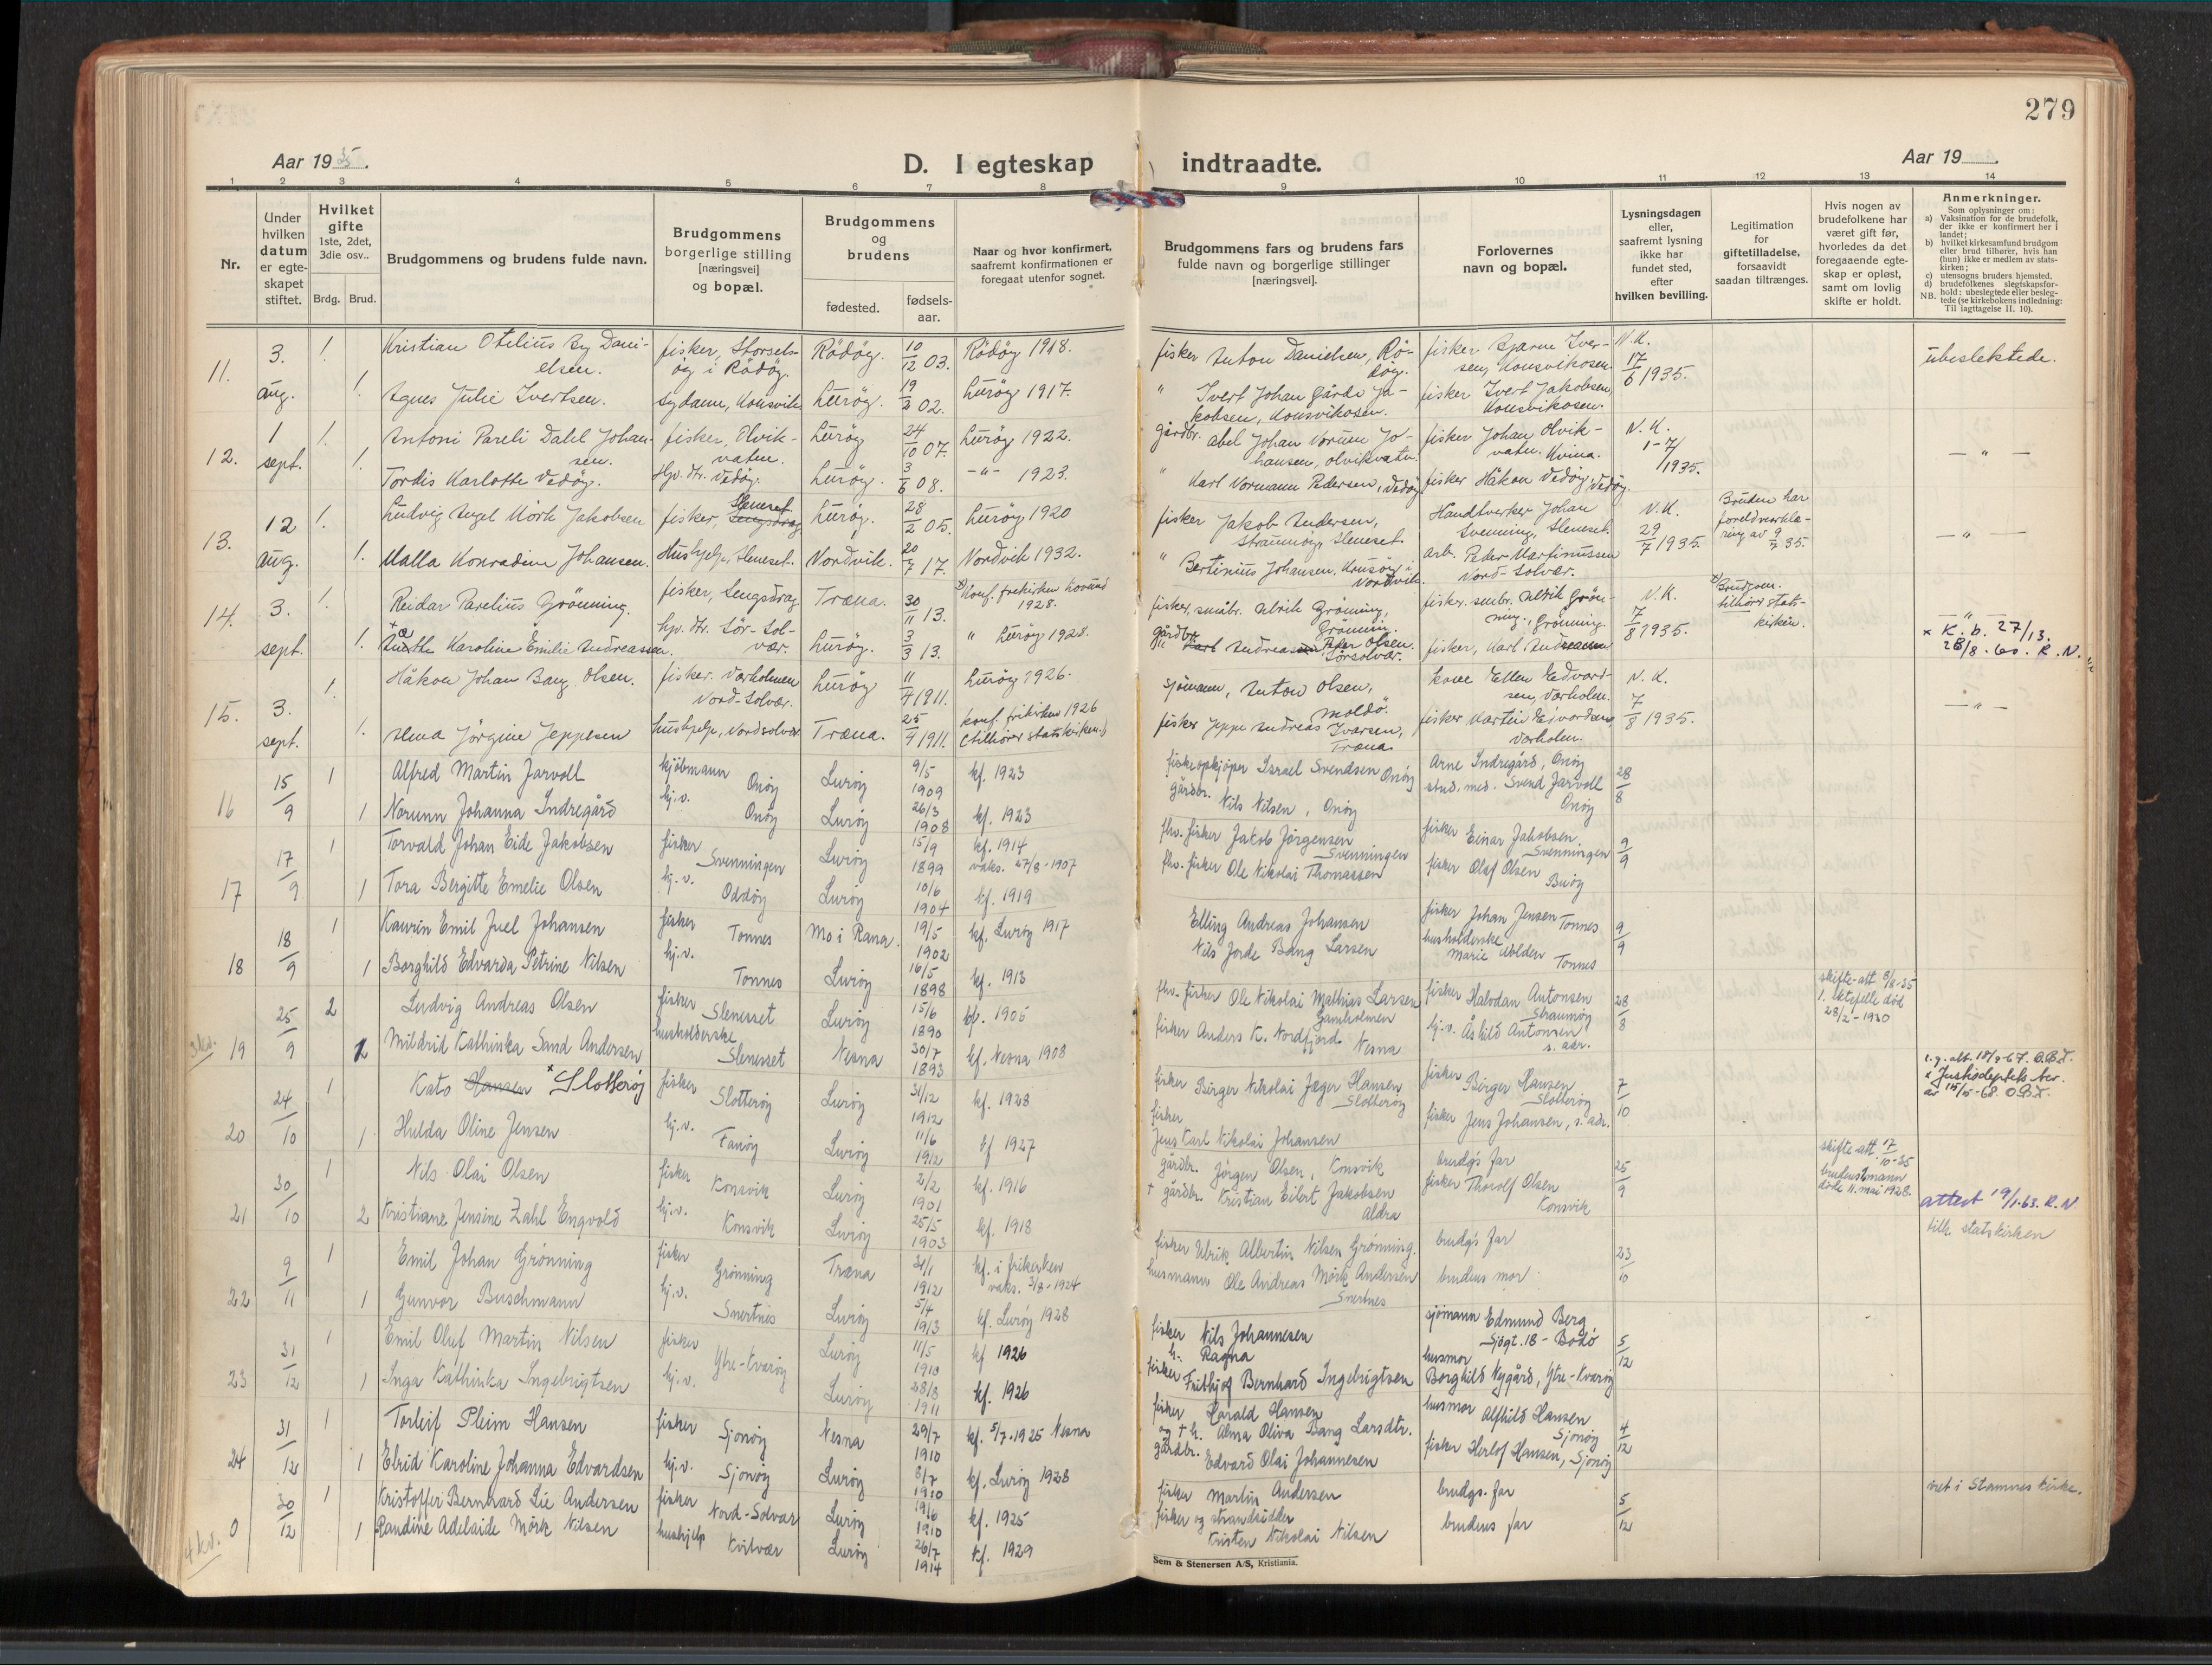 279
Aar 1935.
D. I egteskap indtraadte.
Aar 19
1 2 3 4 5 6 7 8 9 10 11 12 13 14
Nr.
Under hvilken datum er egteskapet stiftet.
Hvilket gifte 1ste, 2det, 3die osv..
Brdg. Brud.
Brudgommens og brudens fulde navn.
Brudgommens borgerlige stilling [næringsvei] og bopæl.
Brudgommens og brudens
fødested.
fødselsaar.
Naar og hvor konfirmert, saafremt konfirmationen er foregaat utenfor sognet.
Brudgommens fars og brudens fars fulde navn og borgerlige stillinger [næringsvei].
Forlovernes navn og bopæl.
Lysningsdagen eller, saafremt lysning ikke har fundet sted, efter hvilken bevilling.
Legitimation for giftetilladelse, forsaavidt saadan tiltrænges.
Hvis nogen av brudefolkene har været gift før, hvorledes da det foregaaende egteskap er opløst, samt om lovlig skifte er holdt.
Anmerkninger.
Som oplysninger om:
a) Vaksination for de brudefolk, der ikke er konfirmert her i landet;
b) hvilket kirkesamfund brudgom eller brud tilhører, hvis han (hun) ikke er medlem av statskirken;
c) utensogns bruders hjemsted.
d) brudefolkenes slegtskapsforhold: ubeslegtede eller beslegtede (se kirkebokens indledning:
NB. Til iagttagelse II. 10).
11. 3. aug. 1. Kristian Otelius By Danielsen. fisker, Storselsöy i Rödöy. Rödöy. 10/12 03. Rödöy 1918. fisker Anton Danielsen, Rödöy. fisker Bjarne Ivertsen, Konsvikosen. N.K. 17/6 1935. ubeslektede.
1. Agnes Julie Ivertsen. sydame, Konsvik. Luröy. 19/2 02. Luröy 1917. " Ivert Johan Gårde Jakobsen, Konsvikosen. fisker Ivert Jakobsen, Konsvikosen.
12. 1 sept. 1. Antoni Pareli Dahl Johansen. fisker, Olvikvatn. Luröy 24/10 07. Luröy 1922. gårdbr. Abel Johan Norum Johansen, Olvikvatn. fisker Johan Olvikvatn. Kvina. N.K. 1-7/1935. — " —
1. Tordis Karlotte Vedöy. Hp. dtr. Vedöy. Luröy. 3/6 08. —"— 1923. " Karl Normann Pedersen, Vedöy. fisker Håkon Vedöy, Vedöy.
13. 12 aug. 1. Ludvig Angel Mörk Jakobsen fisker, Sleneset Luröy. 28/2 05. Luröy 1920 fisker Jakob Andersen, Straumöy, Sleneset. Handtverker Johan Svenning, Sleneset. N.K. 29/7 1935. Bruden har foreldreerklæring av 9/7 35. — " —
1. Malla Konradine Johansen. Hushjelp, Sleneset. Nordvik. 20/7 17. Nordvik 1932. " Bertinius Johansen. Husöy i Nordvik. arb. Peder Martinussen Nord-Solvær.
14. 3. sept. 1. Reidar Parelius Grönning. fisker, Lengsdrag Træna. 30/11 13. x) Konf. frikirken 1928. fisker, småbr. Ulrik Grönning, Grönning. fisker. småbr. Ulrik Grönning, Grönning. N.K. 7/8 1935. x) Brudgom. tilhører statskirken. — " —
1. Karoline Emilie Andreassen. hp. dtr. Sör-Solvær. Luröy. 3/3 13. " Luröy 1928. gårdbr. Peter Olsen. Sörsolvær. fisker, Karl Andreassen x K. b. 27/13. 28/8.60. R.N.
15. 3. sept. 1. Håkon Johan Bang Olsen. fisker. Værholmen Nord-Solvær. Luröy 11/4 1911. Luröy 1926. Sjömann, Anton Olsen, Moldö. kone Ellen Edvardsen, Værholm. N.K. 7/8 1935. — " —
1. Alma Jörgine Jeppesen hushjelp, Nordsolvær Træna. 25/9 1911. konf. frikirken 1926 (tilhører statskirken.) fisker Jeppe Andreas Ivarsen, Træna. fisker Martin Edvardsen, Værholm.
16 15/9 1 Alfred Martin Jarvoll kjöbmann Onöy Lurøy 9/5 1909 kf. 1923 fiskeopkjøper Israel Svendsen Onöy Arne Indregård, Onöy 28/8
1 Norunn Johanna Indregård hj.v. Onöy Lurøy 26/3 1908 kf. 1923 gårdbr. Nils Nilsen, Onöy stud. med. Svend Jarvoll Onöy
17 17/9 1 Torvald Johan Eide Jakobsen fisker Svenningen Lurøy 15/9 1899 kf. 1914 vaks. 27/8-1907 fhv. fisker Jakob Jörgensen Svenningen fisker Einar Jakobsen Svenningen 9/9
1 Tora Bergitte Emelie Olsen hj.v. Oddöy Lurøy 10/6 1904 kf. 1919 fhv. fisker Ole Nikolai Thomassen fisker Olaf Olsen Buöy
18 18/9 1 Kaurin Emil Juel Johansen fisker Tonnes Mo i Rana. 19/5 1902 kf. Lurøy 1917 Elling Andreas Johansen fisker Johan Jensen Tonnes 9/9
1 Borghild Edvarda Petrine Nilsen hj.v. Tonnes Lurøy 16/5 1898 kf. 1913 Nils Jorde Bang Larsen husholderske Marie Molden Tonnes
3 kv. 19 25/9 2 Ludvig Andreas Olsen fisker Slenesset Lurøy 15/6 1890 kf. 1905 fhv. fisker Ole Nikolai Mathias Larsen Gamholmen fisker Halvdan Antonsen Straumöy 28/8 skifte-att 8/8-35 1. ektefelle död 28/2-1930
2 Mildrid Kathinka Sand Andersen husholderske Slenesset Nesna 30/7 1893 kf. Nesna 1908 fisker Anders K. Nordfjord Nesna hj.v. Åshild Antonsen s. adr.
20 24/10 1 Kato Hansen x Slotteröy fisker Slotteröy Lurøy 31/12 1912 kf. 1928 fisker Birger Nikolai Jæger Hansen Slotteröy fisker Birger Hansen Slotteröy 7/10 x Justisdeptets bev. av 15/5-68.
1 Hulda Oline Jensen hj.v. Fanöy Lurøy 11/6 1912 kf 1927 fisker Jens Karl Nikolai Johansen fisker Jens Johansen, s. adr.
21 30/10 1 Nils Olai Olsen fisker Konsvik Lurøy 2/2 1901 kf. 1916 gårdbr. Jörgen Olsen, Konsvik brudg's far 25/9 skifte-att 17/10-35 brudens 1. mann döde 11. mai 1928.
2 Kristiane Jensine Zahl Engvold hj.v. Konsvik Lurøy 25/5 1903 kf. 1918 + gårdbr. Kristian Eilert Jakobsen Aldra fisker Thorolf Olsen Konsvik attest 19/1.63. R.N.
22 9/11 1 Emil Johan Grönning fisker Grönning Træna 31/1 1912 kf. i frikirken vaks. 3/8-1924 fisker Ulrik Albertin Nilsen Grönning. brudg's far 23/10 tilh. statskirken
1 Gunvor Buschmann hj.v. Snertnes Lurøy 5/4 1913 kf. Lurøy 1928 husmann Ole Andreas Mörk Andersen Snertnes brudens mor
23 31/12 1 Emil Oluf Martin Nilsen fisker Ytre-Kvaröy Lurøy 11/5 1910 kf 1926 fisker Nils Johannesen h. Ragna sjömann Edmund Berg Sjøgt. 18 - Bodö 5/12
1 Inga Kathinka Ingebrigtsen hj.v. Lurøy 28/8 1911 kf. 1926 fisker Frithjof Bernhard Ingebrigtsen husmor Borghild Nygård, Ytre-Kvaröy
24 31/12 1 Torleif Pleim Hansen fisker Sjonöy Nesna 29/7 1910 kf. 5/7-1925 Nesna fisker Harald Hansen og + h. Alma Oliva Bang Larsdtr. husmor Alfhild Hansen Sjonöy 4/12
1 Elrid Karoline Johanna Edvardsen hj.v. Sjonöy Lurøy 8/7 1910 kf. Lurøy 1928 gårdbr. Edvard Olai Johannesen fisker Herlof Hansen, Sjonöy
4 kv. 0 30/12 1 Kristoffer Bernhard Lie Andersen fisker Nord-Solvær Lurøy 19/6 1910 kf. 1925 fisker Martin Andersen brudgs. far 5/12 viet i Stamnes kirke.
1 Randine Adelaide Mörk Nilsen hushjelp Kvitvær Lurøy 26/7 1914 kf. 1929 fisker og strandsidder Kristen Nikolai Nilsen brudens far
Sem & Stenersen A/S, Kristiania.